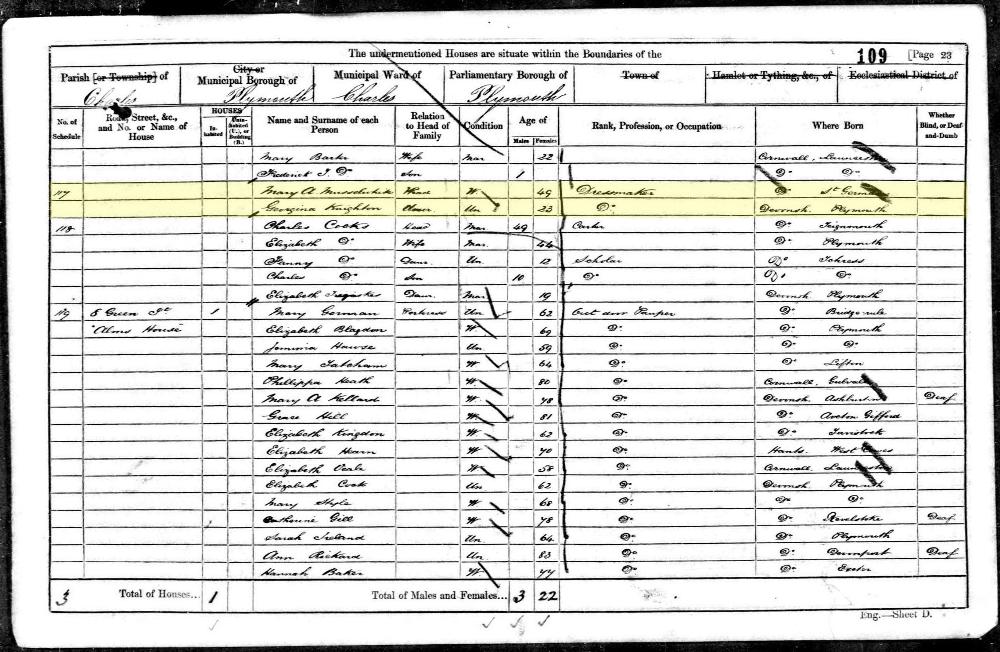 The undermentioned Houses are situate within the Boundaries of the 109 [Page 23
Parish [or Township] of City or Municipal Borough of Municipal Ward of Parliamentary Borough of Town of Hamlet or Tything, &c., of Ecclesiastical District of
Charles Plymouth Charles Plymouth
No. of Schedule Road, Street, &c., and No. or Name of House HOUSES Inhabited Uninhabited (U.), or Building (B.) Name and Surname of each Person Relation to Head of Family Condition Age of Males Females Rank, Profession, or Occupation Where Born Whether Blind, or Deaf-and-Dumb
Mary Barker Wife Mar 22 Cornwall, Launceston
Frederick J. Do Son 1 Do Do
117 Mary A Head W 49 Dressmaker Do St Germans
Georgina Knighton Un 23 Do Devonsh Plymouth
118 Charles Cocks Head Mar 49 Do Teignmouth
Elizabeth Do Wife Mar 44 Do Plymouth
Fanny Do Daur Un 12 Scholar Do
Charles Do Son 10 Do Do Do
Elizabeth Daur Mar 19 Devonsh Plymouth
119 8 Green St 1 Mary German Un 62 Out door Pauper Do Bridgerule
Alms House Elizabeth Blagdon W 69 Do Do Plymouth
Jemima Hawse Un 59 Do Do Do
Mary Tatcham W 64 Do Do Lifton
Phillippa Heath W 80 Do Cornwall, Gulval
Mary A Kellard W 78 Do Devonsh Ashburton Deaf
Grace Hill W 81 Do Do Aveton Gifford
Elizabeth Kingdon W 62 Do Do Tavistock
Elizabeth Hearn W 70 Do Hants West Cowes
Elizabeth Veale W 58 Do Cornwall, Launceston
Elizabeth Cook Un 62 Do Devonsh Plymouth
Mary Style W 68 Do Do Do
Catherine Gill W 78 Do Do Revelstoke Deaf
Sarah Ireland Un 64 Do Do Plymouth
Ann Rickard Un 83 Do Do Devonport Deaf
Hannah Baker W 77 Do Do Exeter
3 Total of Houses... 1 Total of Males and Females... 3 22
Eng.—Sheet D.